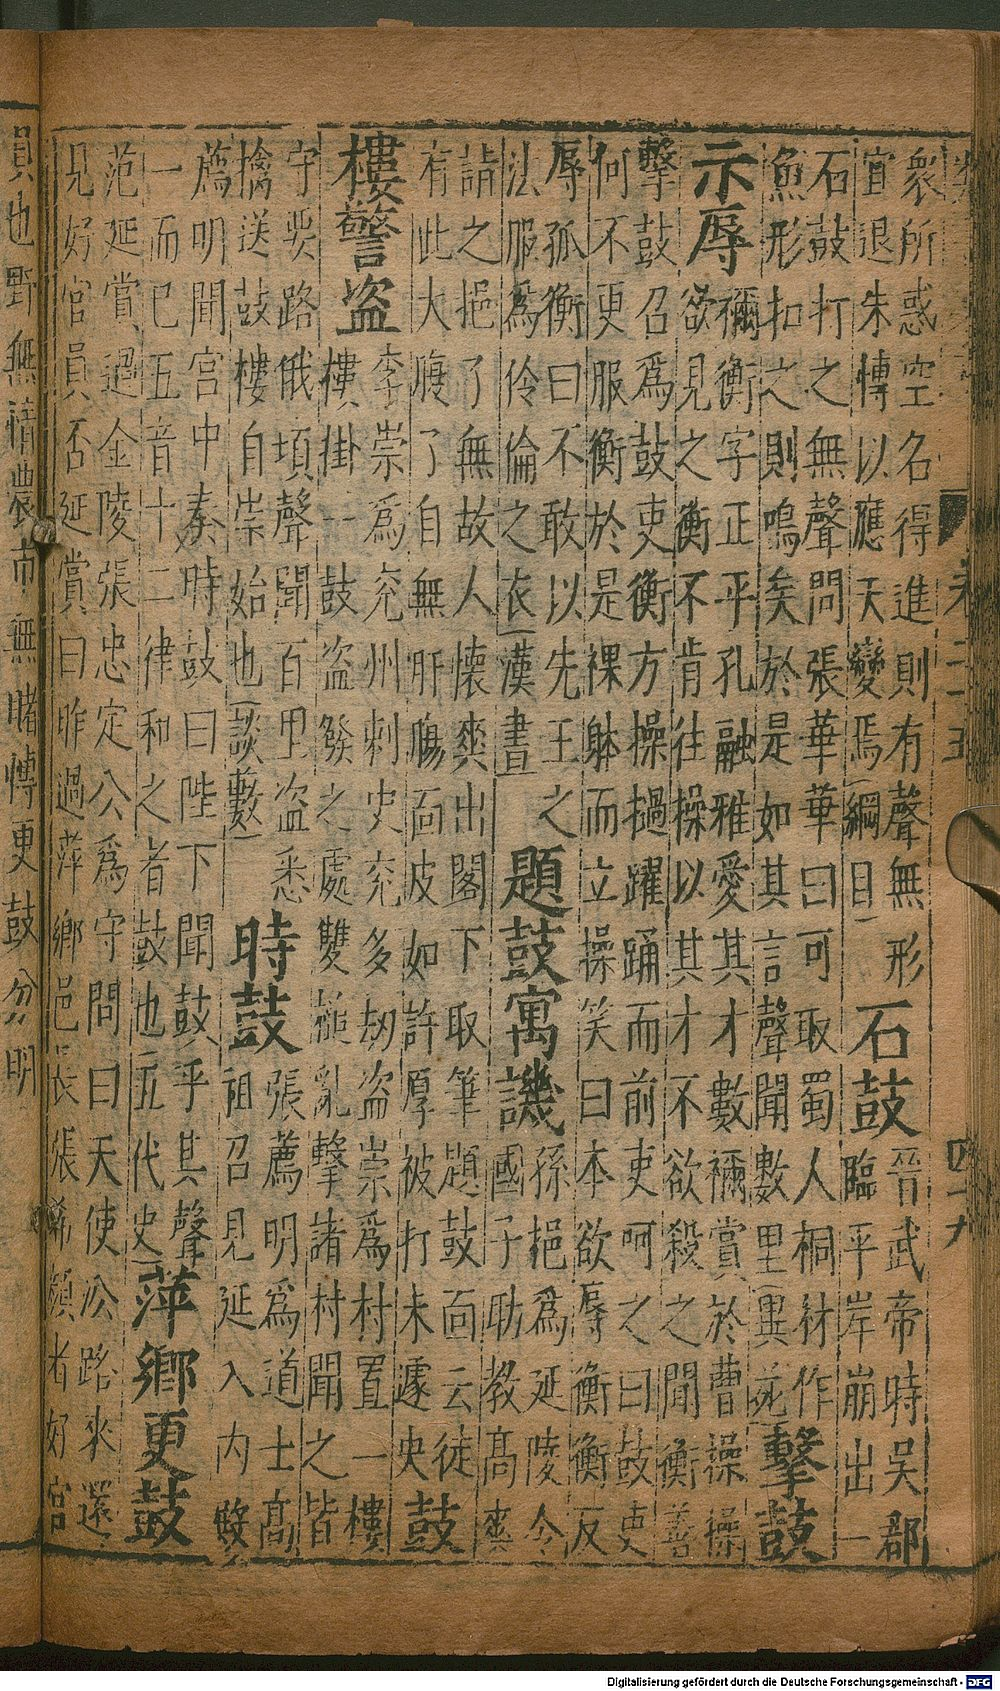 卷二十五
四十九
衆所惑空名得進則有聲無形
宜退朱博以應天變焉綱目
石鼓
晉武帝時吳郡
臨平岸崩出一
石鼓打之無聲問張華華曰可取蜀人桐材作
魚形扣之則鳴矣於是如其言聲聞數里異苑
擊鼓
示辱
禰衡字正平孔融雅愛其才數禰賞於曹操操
欲見之衡不肯往操以其才不欲殺之聞衡善
擊鼓召爲鼓吏衡方操撾躍踊而前吏呵之曰鼓吏
何不更服衡於是裸躰而立操笑曰本欲辱衡衡反
辱孤衡曰不敢以先王之
法服爲伶倫之衣漢書
題鼓寓譏
孫挹爲延陵令
國子助教高爽
請之挹了無故人懷爽出閣下取筆題鼓面云徒
有此大腹了自無肝腸面皮如許厚被打未遽央
鼓
樓警盜
李崇爲兖州刺史兖多刼盜崇爲村置一樓
樓掛一鼓盜發之處雙槌亂擊諸村聞之皆
守要路俄頃聲聞百里盜悉
擒送鼓樓自崇始也談藪
時鼓
張薦明爲道士高
祖召見延入內殿
薦明聞宮中奏時鼓曰陛下聞鼓乎其聲
一而已五音十二律和之者鼓也五代史
萍鄉更鼓
范延賞過金陵張忠定公爲守問曰天使沿路來還
見好官員否延賞曰昨過萍鄉邑長張希顔者好官
員也野無惰農市無賭博更鼓分明
Digitalisierung gefördert durch die Deutsche Forschungsgemeinschaft - DFG